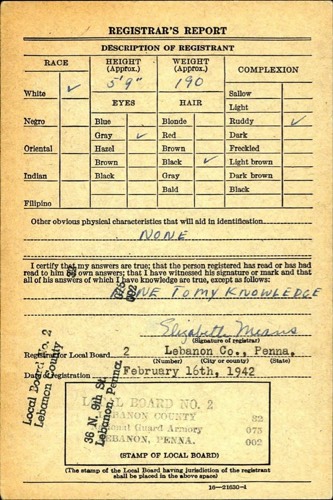 REGISTRAR'S REPORT
DESCRIPTION OF REGISTRANT
RACE
HEIGHT
(Approx.)
WEIGHT
(Approx.)
COMPLEXION
White ✓
5'9"
190
Sallow
EYES
HAIR
Light
Negro
Blue
Blonde
Ruddy ✓
Gray ✓
Red
Dark
Oriental
Hazel
Brown
Freckled
Brown
Black ✓
Light brown
Indian
Black
Gray
Dark brown
Bald
Black
Filipino
Other obvious physical characteristics that will aid in identification
NONE
I certify that my answers are true; that the person registered has read or has had
read to him his own answers; that I have witnessed his signature or mark and that
all of his answers of which I have knowledge are true, except as follows:
NONE TO MY KNOWLEDGE
Elizabeth Means
(Signature of registrar)
Registrar for Local Board 2 Lebanon Co., Penna,
(Number) (City or county) (State)
Date of registration February 16th, 1942
Local Board No. 2
Lebanon County
36 N. 9th St.
Lebanon, Penna.
LOCAL BOARD NO. 2
LEBANON COUNTY 32
Guard Armory 075
LEBANON, PENNA. 002
(STAMP OF LOCAL BOARD)
(The stamp of the Local Board having jurisdiction of the registrant
shall be placed in the above space)
16—21630-4